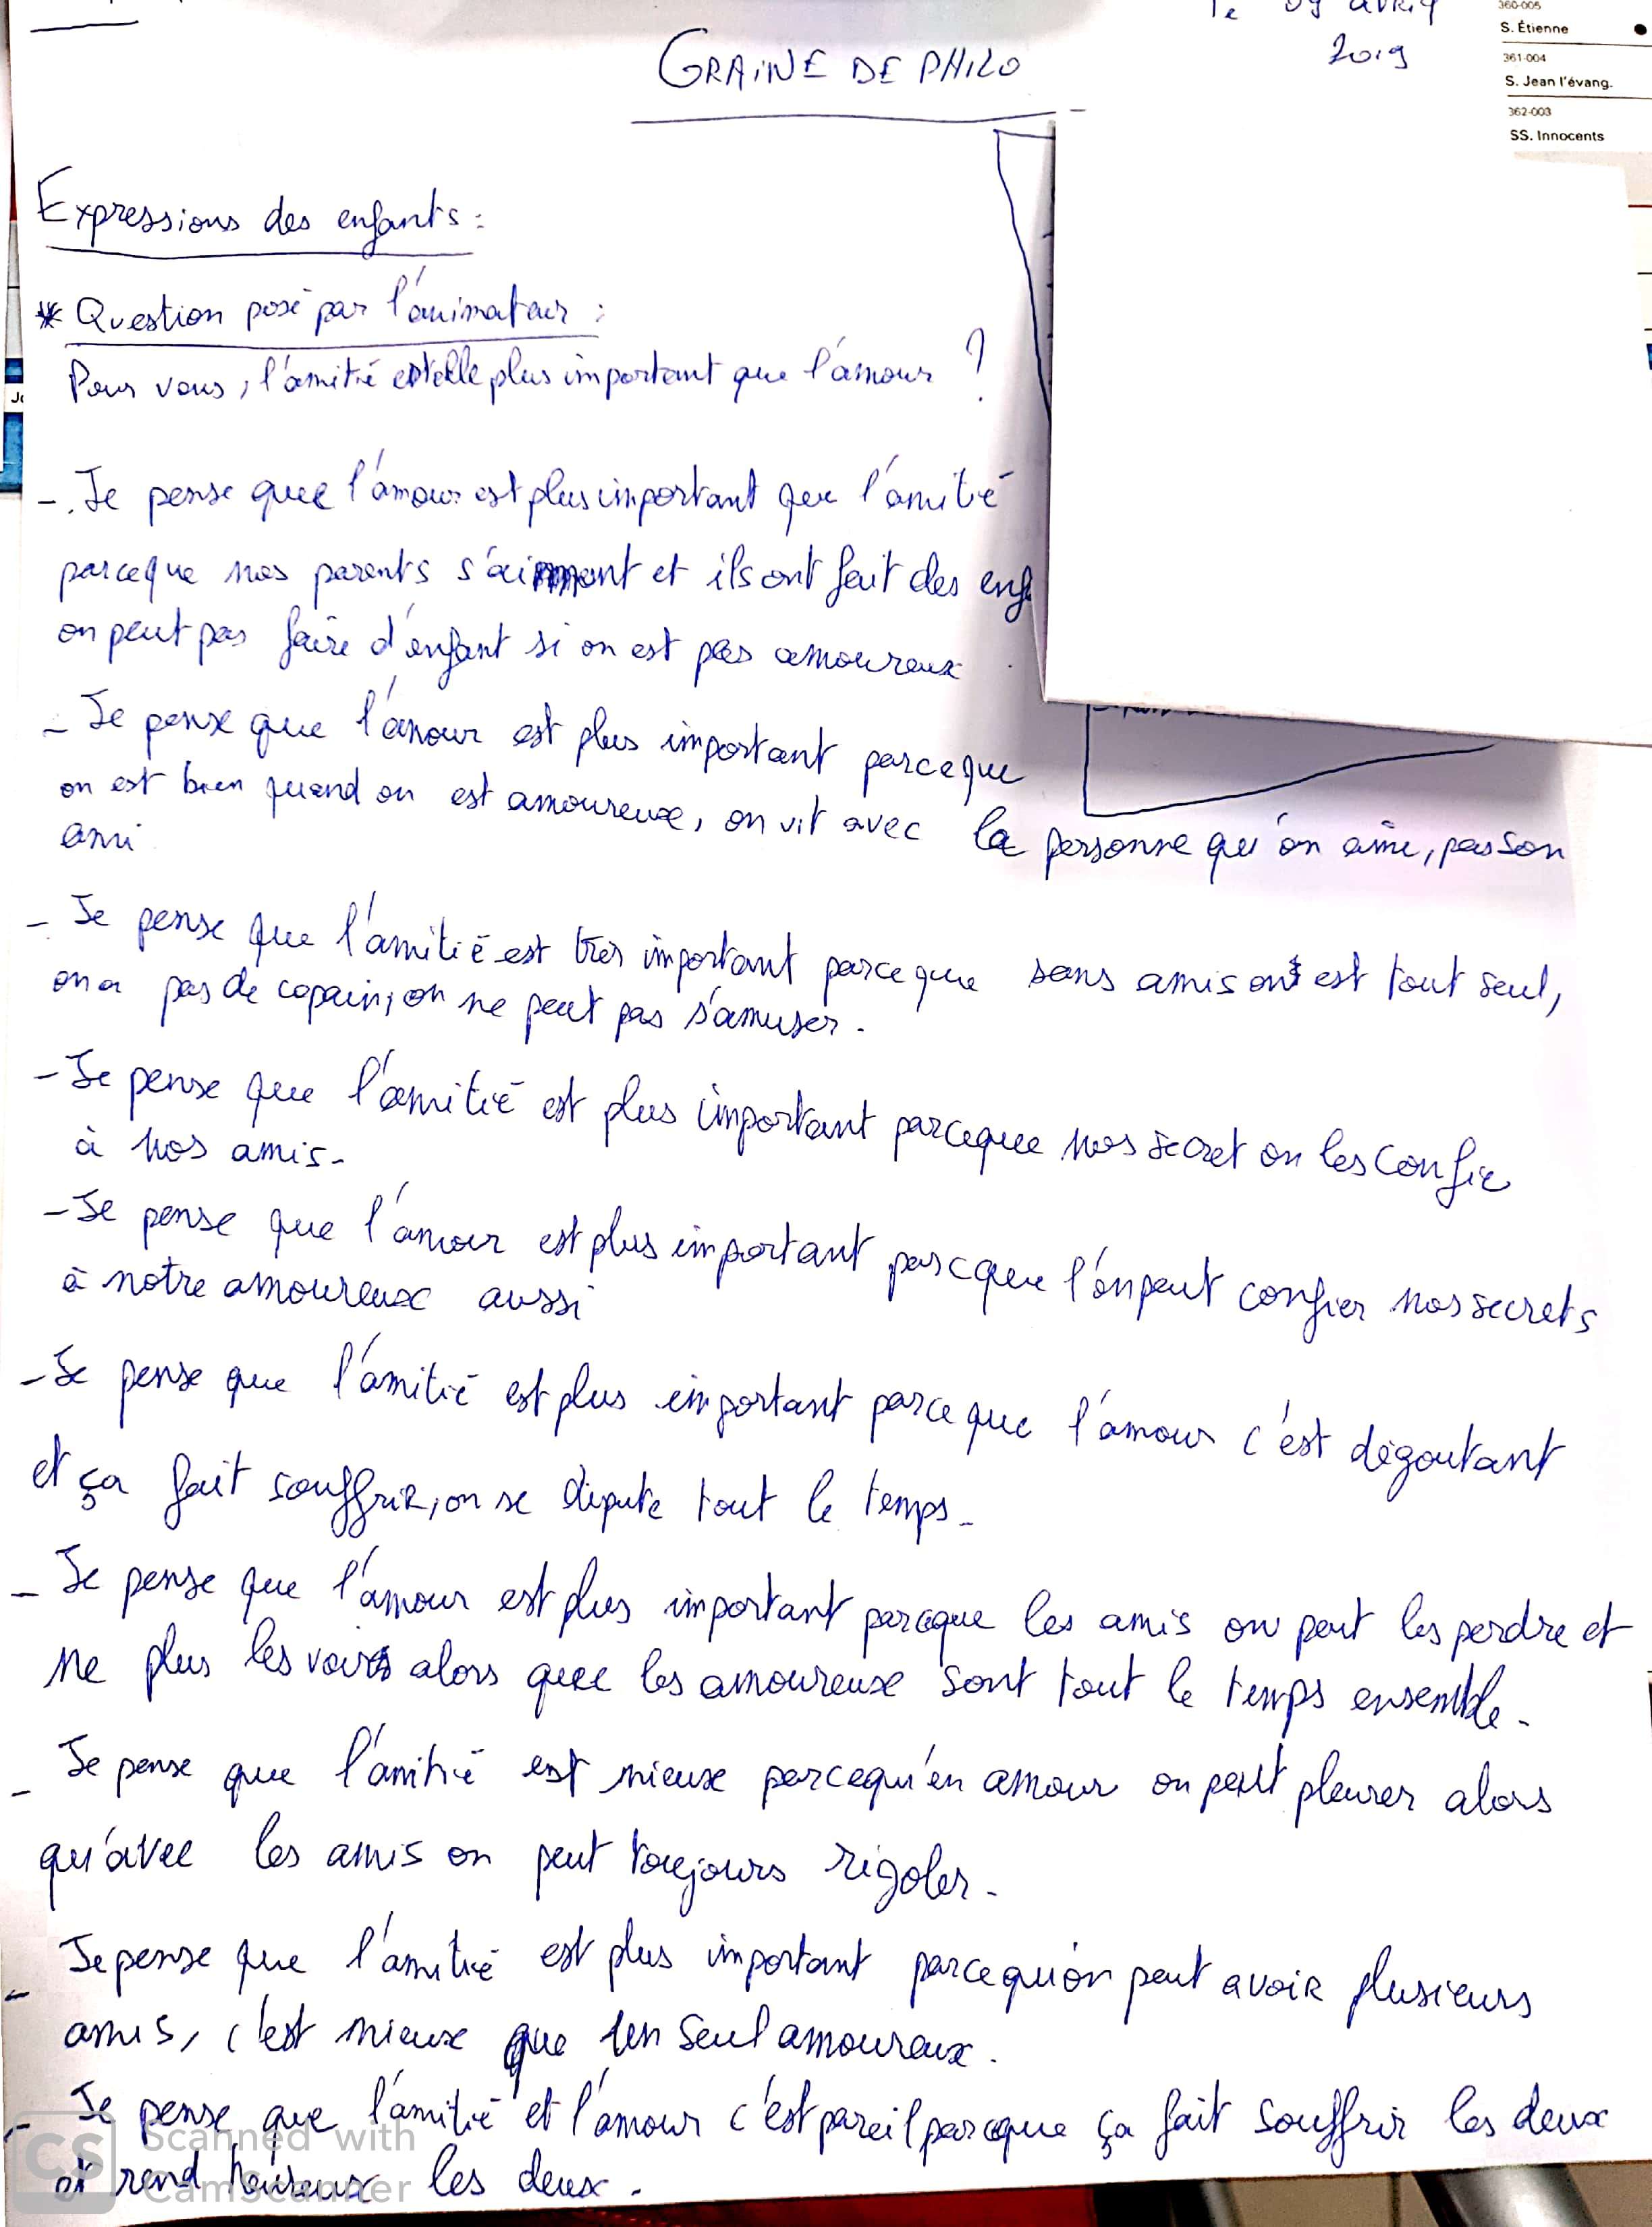 le 09 avril
2019
360-005
S. Étienne
361-004
S. Jean l'évang.
362-003
SS. Innocents
GRAINE DE PHILO
Expressions des enfants :
* Question posé par l'animateur :
Pour vous, l'amitié est elle plus important que l'amour ?
-. Je pense que l'amour est plus important que l'amitié
parceque nos parents s'aiment et ils ont fait des enf
on peut pas faire d'enfant si on est pas amoureux
- Je pense que l'amour est plus important parceque
on est bien quand on est amoureux, on vit avec la personne qu'on aime, pas son
ami
- Je pense que l'amitié est très important parceque sans amis on est tout seul,
on a pas de copain, on ne peut pas s'amuser.
- Je pense que l'amitié est plus important parceque nos secret on les confie
à nos amis.
- Je pense que l'amour est plus important parcque l'on peut confier nos secrets
à notre amoureux aussi
- Je pense que l'amitié est plus important parceque l'amour c'est dégoutant
et ça fait souffrir, on se dispute tout le temps.
- Je pense que l'amour est plus important parceque les amis on peut les perdre et
ne plus les voir alors que les amoureux sont tout le temps ensemble.
- Je pense que l'amitié est mieux parcequ'en amour on peut pleurer alors
qu'avec les amis on peut toujours rigoler.
- Je pense que l'amitié est plus important parcequ'on peut avoir plusieurs
amis, c'est mieux que un seul amoureux.
- Je pense que l'amitié et l'amour c'est pareil parceque ça fait souffrir les deux
et rend heureux les deux.
CS Scanned with
CamScanner